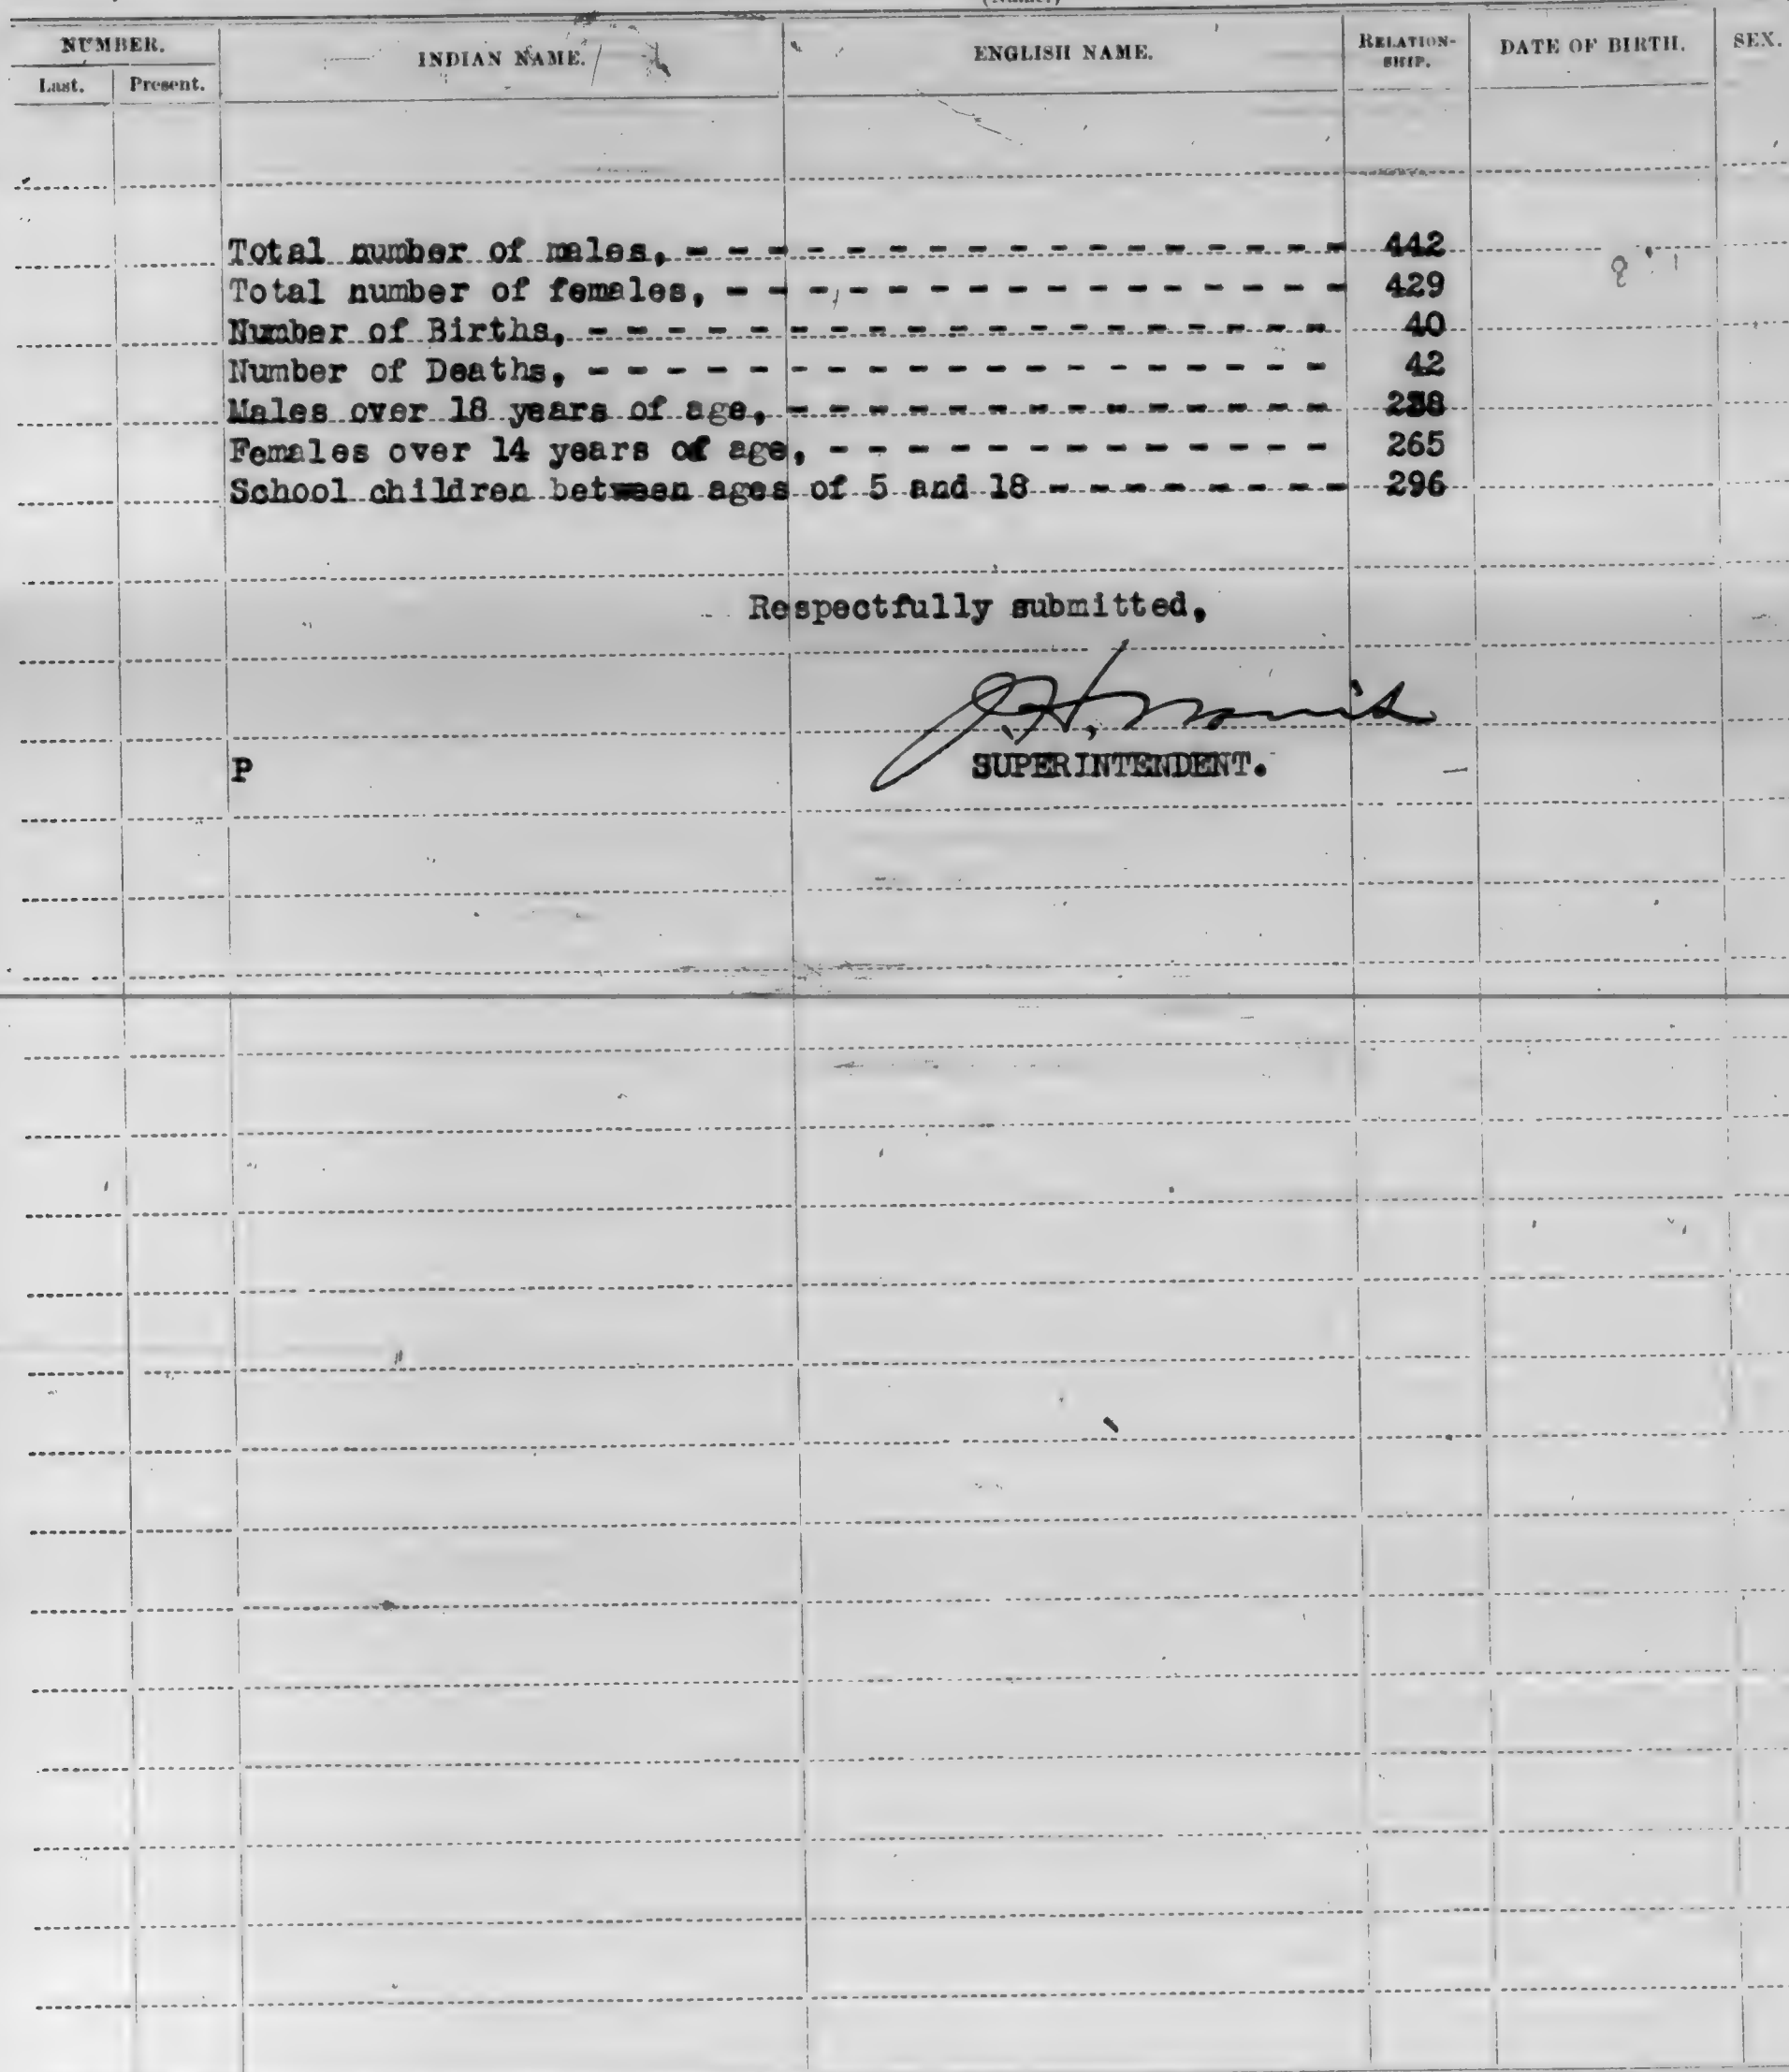 NUMBER. INDIAN NAME. ENGLISH NAME. RELATION-SHIP. DATE OF BIRTH. SEX.
Last. Present.
Total number of males, - - - - - - - - - - - - - - - - - 442
Total number of females, - - - - - - - - - - - - - - - - 429
Number of Births, - - - - - - - - - - - - - - - - - - - 40
Number of Deaths, - - - - - - - - - - - - - - - - - - - 42
Males over 18 years of age, - - - - - - - - - - - - - -
Females over 14 years of age, - - - - - - - - - - - - - 265
School children between ages of 5 and 18 - - - - - - - - 296
Respectfully submitted,
J. H.
SUPERINTENDENT.
P